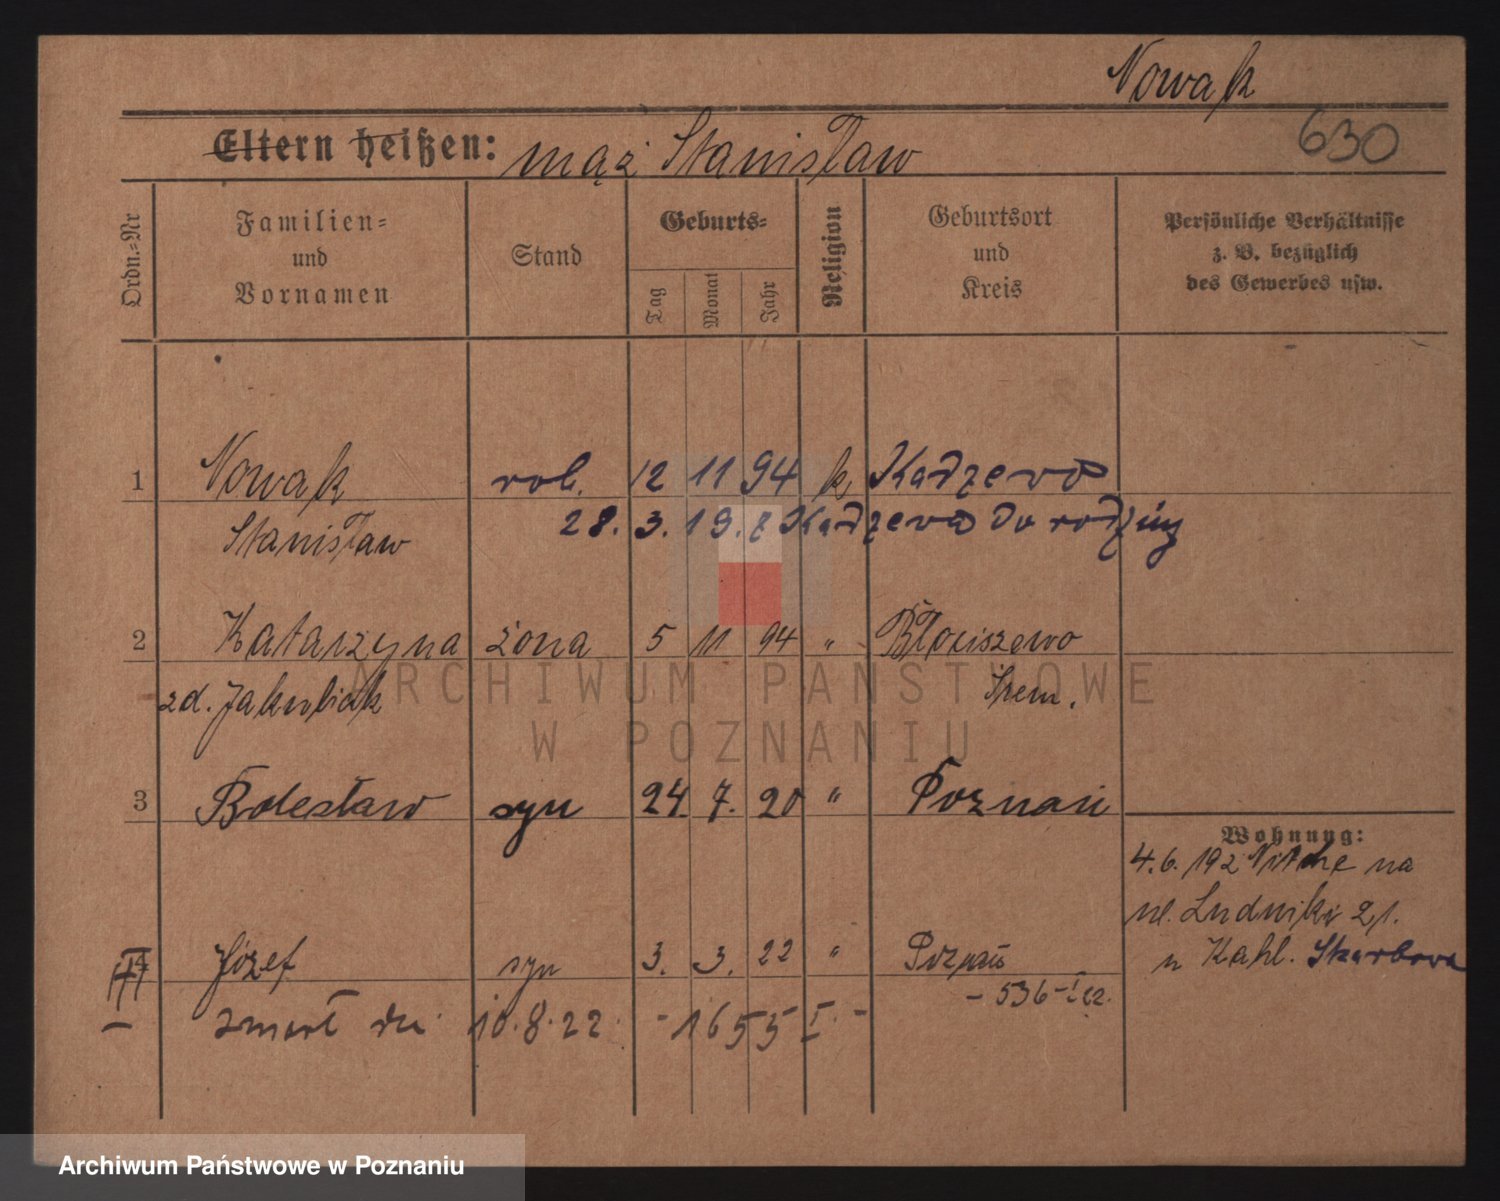 Nowak
Eltern heißen: mąż Stanisław
630
Ordn.-Nr
Familien- und Vornamen
Stand
Geburts-
Tag
Monat
Jahr
Religion
Geburtsort und Kreis
Persönliche Verhältnisse
z. B. bezüglich
des Gewerbes usw.
1 Nowak rob. 12 11 94 k. Kadzewo
Stanisław 28. 3. 19. z Kadzewo do rodziny
2 Katarzyna żona 5 11 94 " Błociszewo
zd. Jakubiak Śrem.
ARCHIWUM PAŃSTWOWE
W POZNANIU
3 Bolesław syn 24. 7. 20 " Poznań
Wohnung:
4. 6. 192 na
ul. Ludwiki 21.
u Kahl. Skarbowa
4 Józef syn 3. 3. 22 " Poznań
- 536 - I 22.
zmarł dn. 10. 8. 22. - 1655 I. -
Archiwum Państwowe w Poznaniu